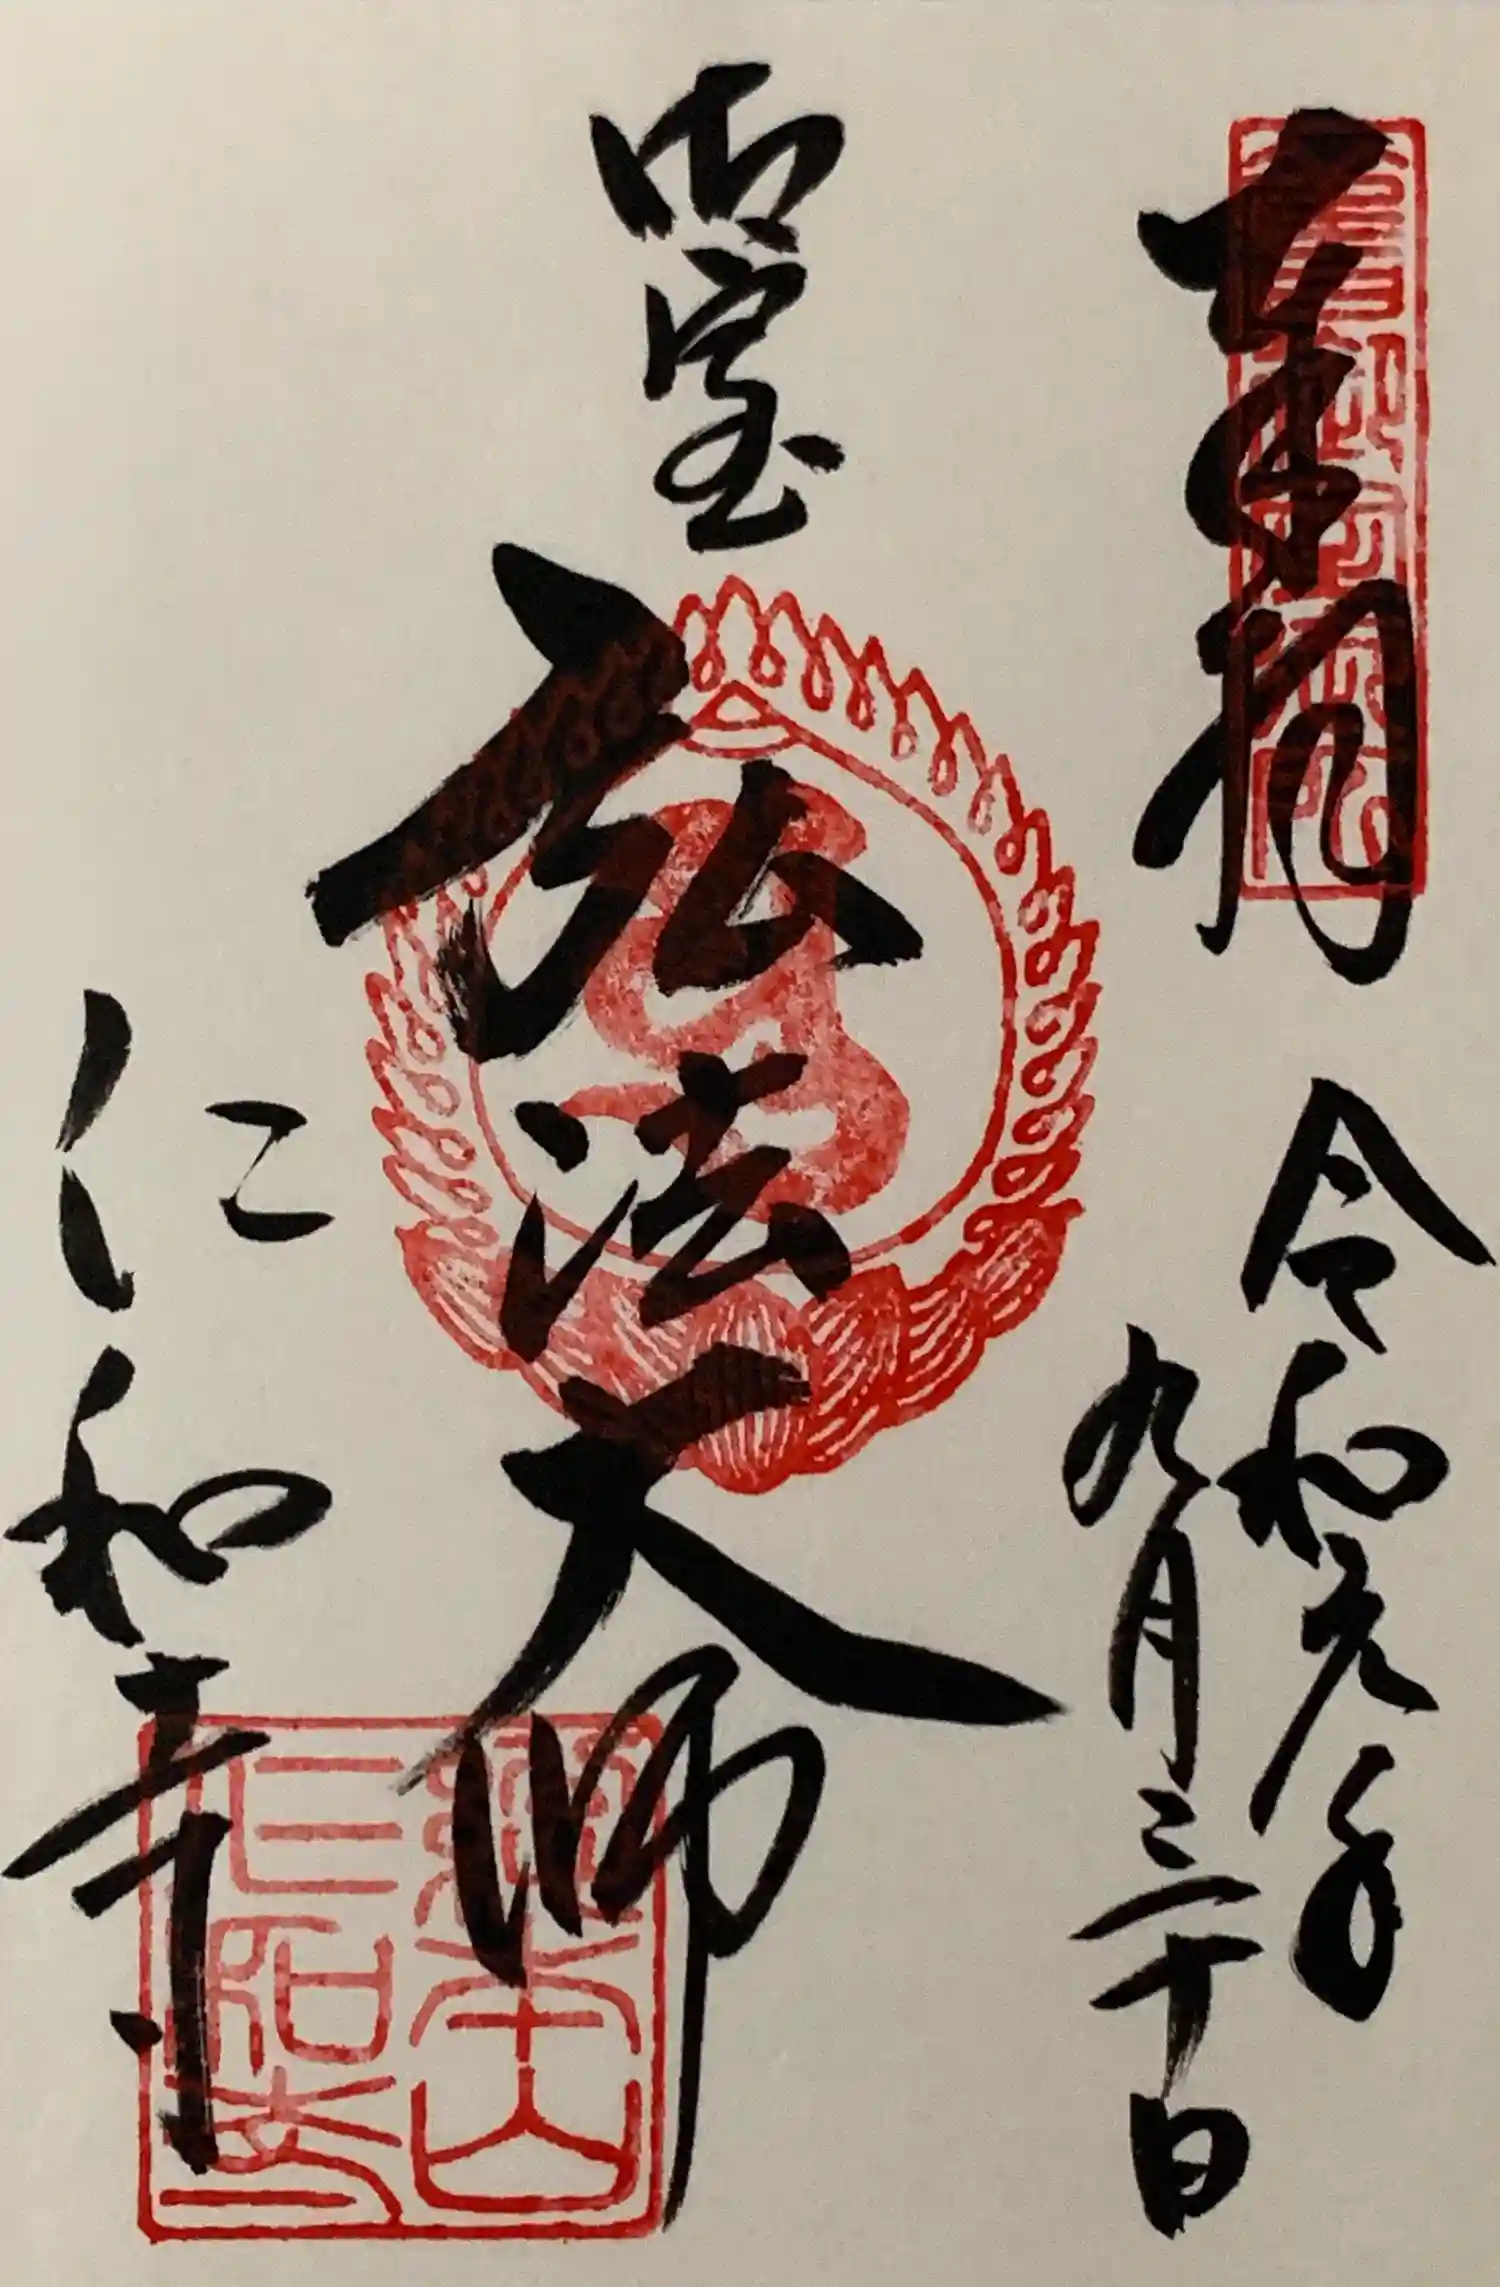 奉拝
令和元年
九月三十日
御室
弘法大師
仁和寺
總本山
仁和寺